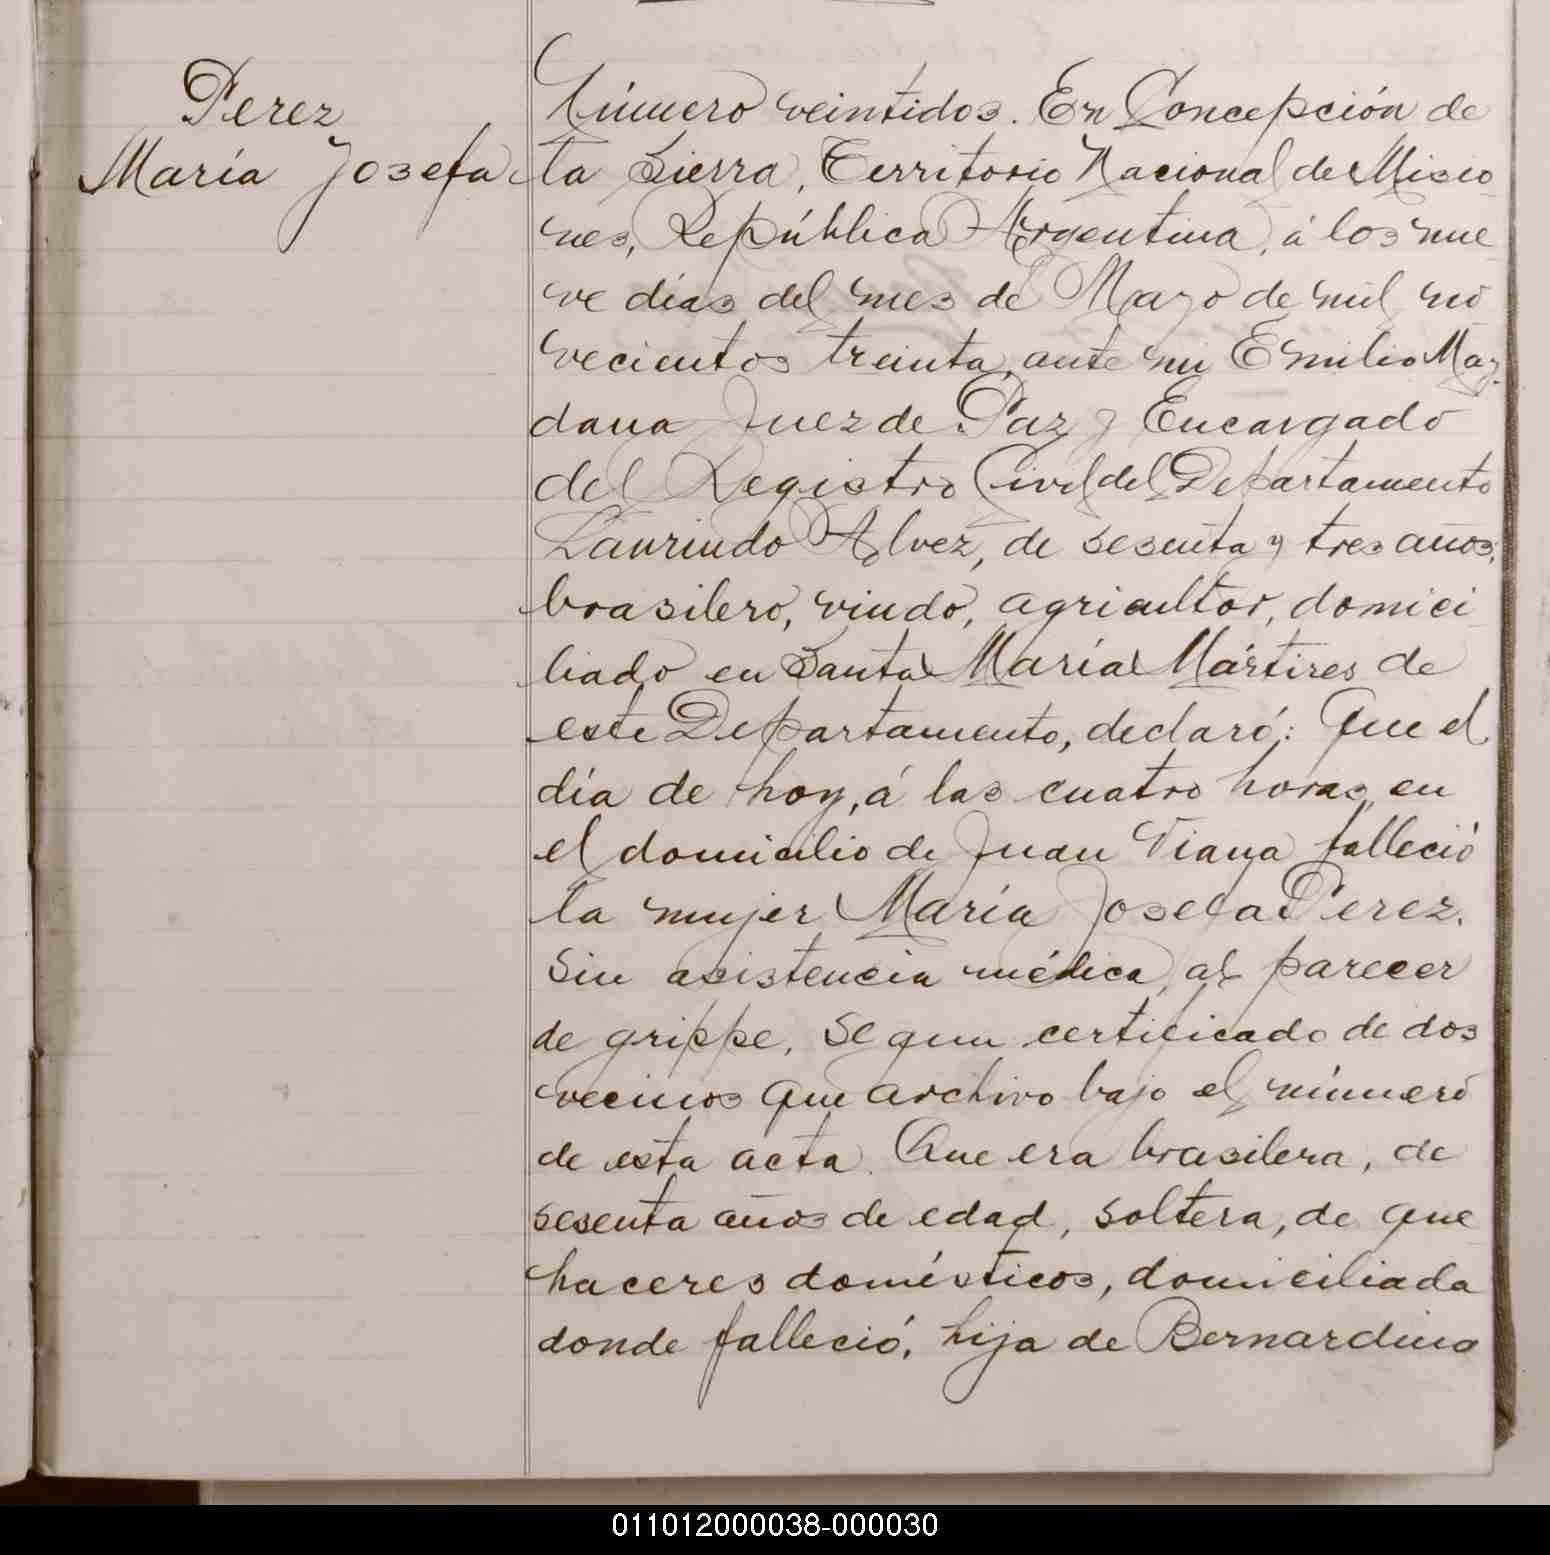 Perez
María Josefa
Número veintidos. En Concepción de
la Sierra, Territorio Nacional de Misio
nes, República Argentina, á los nue
ve días del mes de Mayo de mil no
vecientos treinta, ante mi Emilio May
dana Juez de Paz y Encargado
del Registro Civil del Departamento
Laurindo Alvez, de sesenta y tres años,
brasilero, viudo, agricultor, domici
liado en Santa María Mártires de
este Departamento, declaró: Que el
día de hoy, á las cuatro horas, en
el domicilio de Juan Viana falleció
la mujer María Josefa Perez.
Sin asistencia médica, al parecer
de grippe, segun certificado de dos
vecinos que archivo bajo el número
de esta acta. Que era brasilera, de
sesenta años de edad, soltera, de que
haceres domésticos, domiciliada
donde falleció, hija de Bernardino
011012000038-000030